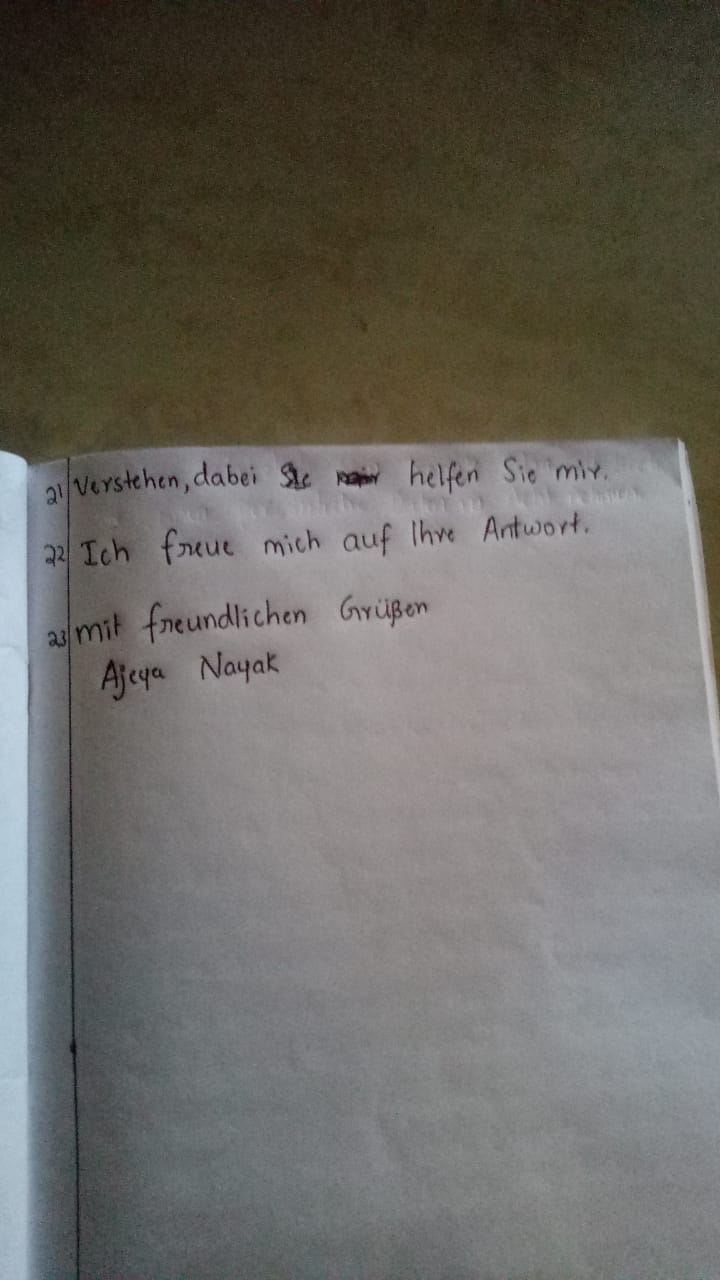 21 Verstehen, dabei helfen Sie mir.
22 Ich freue mich auf Ihre Antwort.
23 mit freundlichen Grüßen
Ajeya Nayak